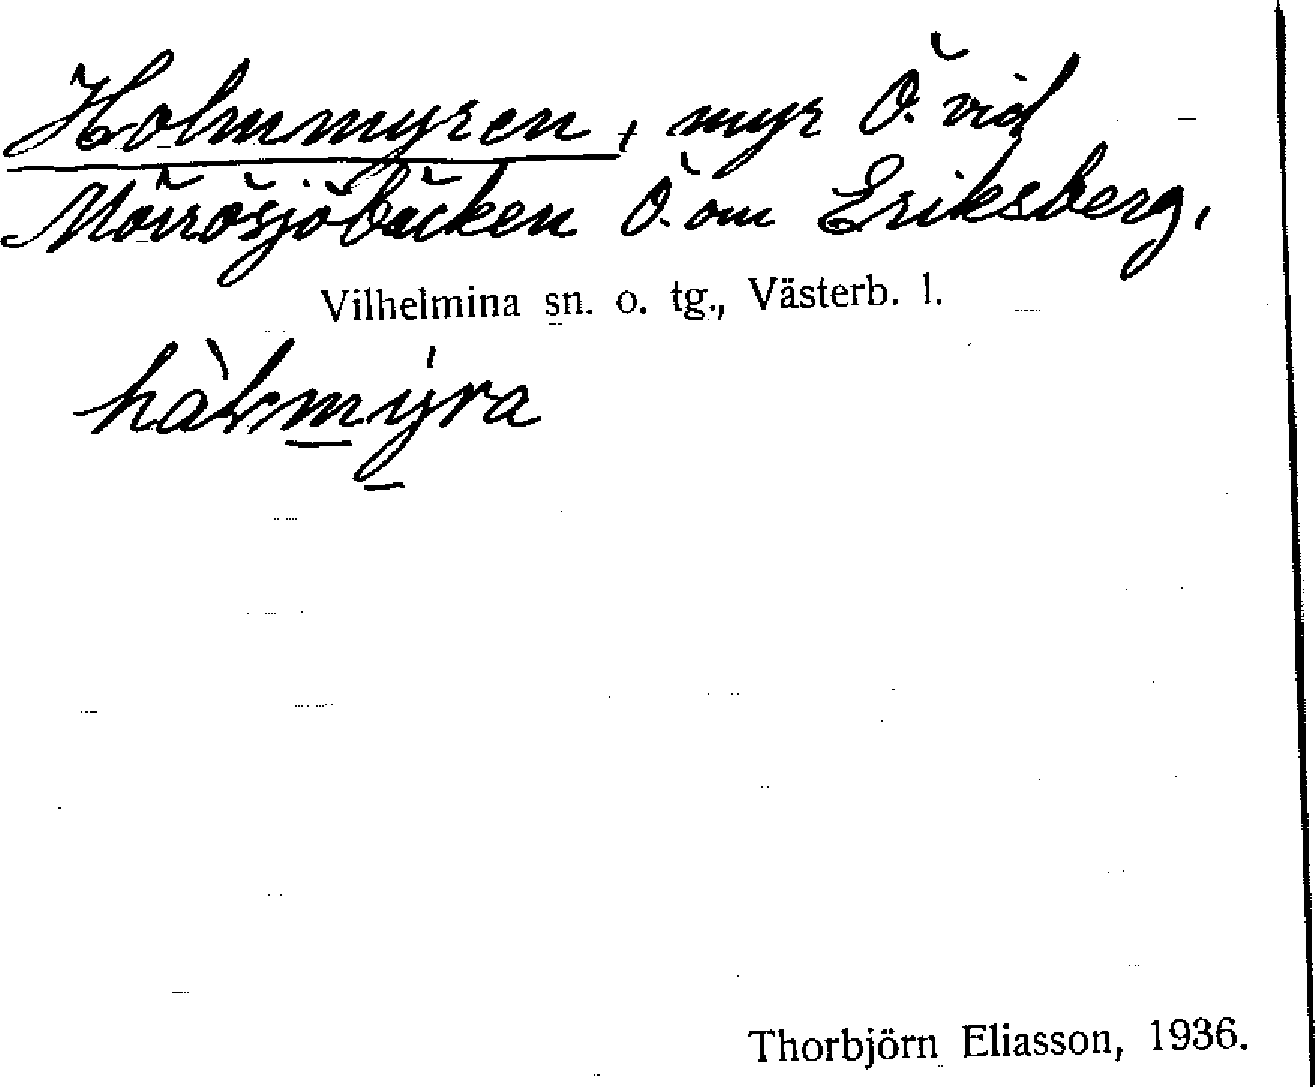 Holmmyren, myr Ö. vid
Mörrösjöbäcken Ö. om Eriksberg,
Vilhelmina sn. o. tg., Västerb. l.
Thorbjörn Eliasson, 1936.